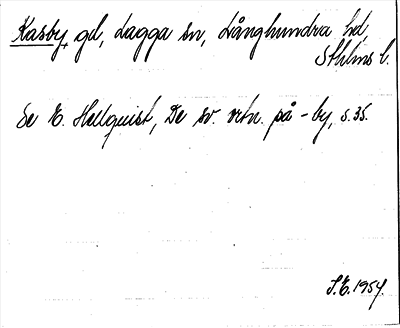 Kasby, gd, Lagga sn, Långhundra hd,
Sthlms l.
Se E. Hellquist, De sv. ortn. på -by, s. 35.
S.E. 1954.